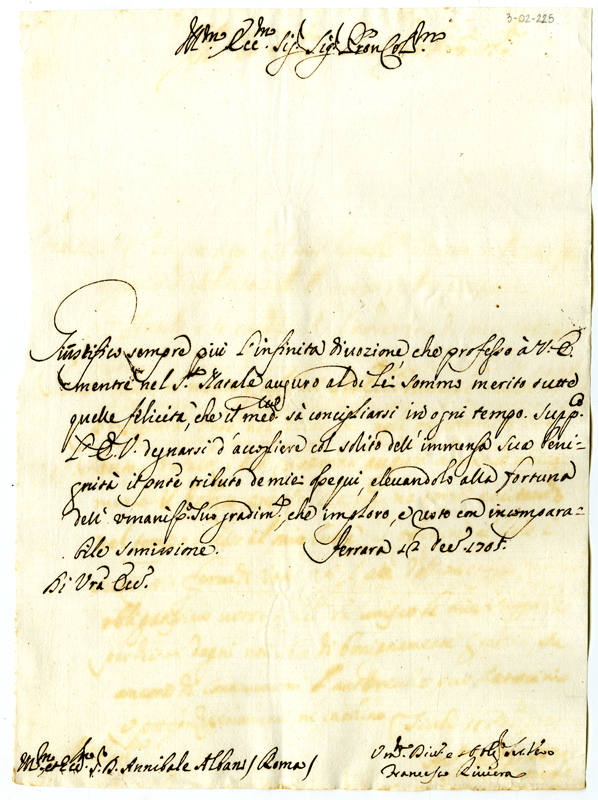 3-02-225
Ill.mo Ecc.mo Sig.r Sig.r Pron Col.mo
Giustifico sempre più l'infinita divozione, che professo à V.E.
mentre nel S.to Natale auguro al di Lei sommo merito tutte
quelle felicità, che il med.mo sà concigliarsi in ogni tempo. Supp.co
l'E.V. degnarsi d'accogliere col solito dell'immensa sua beni=
gnità il pnte tributo de miei ossequi, elevandolo alla fortuna
dell'umaniss.o suo gradim.to, che imploro, e resto con incompara=
bile somissione. Ferrara 12 Dec.e 1705.
Di Vra Ecc.a
D. Annibale Albani (Roma)
Francesco Riviera